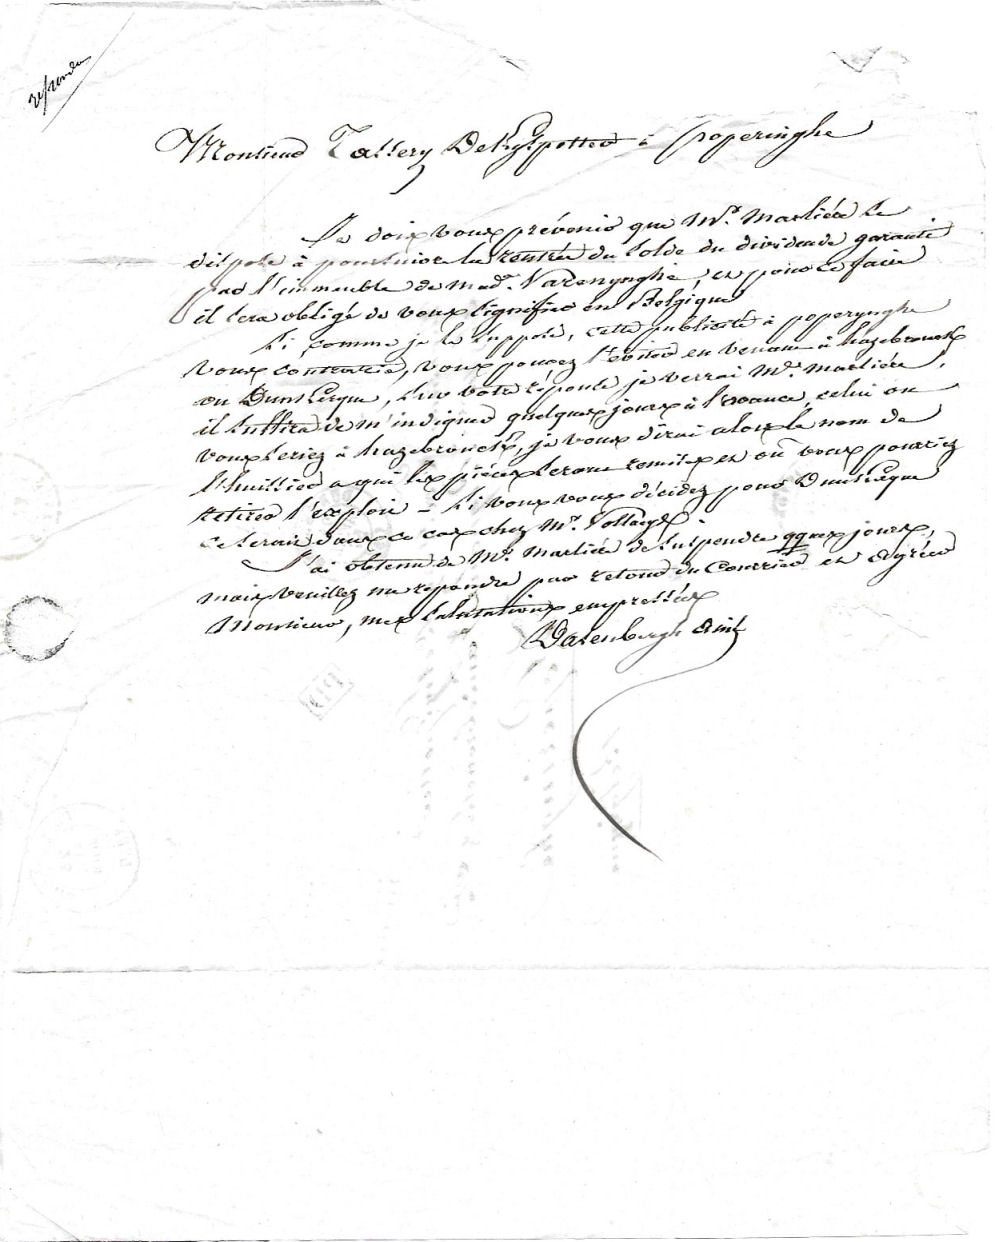 répondu
Monsieur Tassery à poperinghe
Je dois vous prévenir que Mr. Marlière se
dispose à poursuivre la rentrée du solde du dividende garanti
par l'immeuble de mad.e Vazenynghe, et pour ce faire
il sera obligé de vous signifier en Belgique
Si, comme je le suppose, cette publicité à poperynghe
vous contrarie, vous pouvez l'éviter en venant à hazebrouck
ou Dunkerque, sur votre réponse je verrai Mr. Marlière,
il suffira de m'indiquer quelques jours à l'avance, celui où
vous seriez à hazebrouck, je vous dirai alors le nom de
l'huissier a qui les pièces seront remises et où vous pourriez
retirer l'exploit – Si vous vous décidez pour Dunkerque
ce serait dans ce cas chez Mr.
J'ai obtenu de Mr. Marlière de suspendre qques jours,
mais veuillez me répondre par retour du Courrier et agréer
Monsieur, mes salutations empressées
Vasenbergh ainé
PD